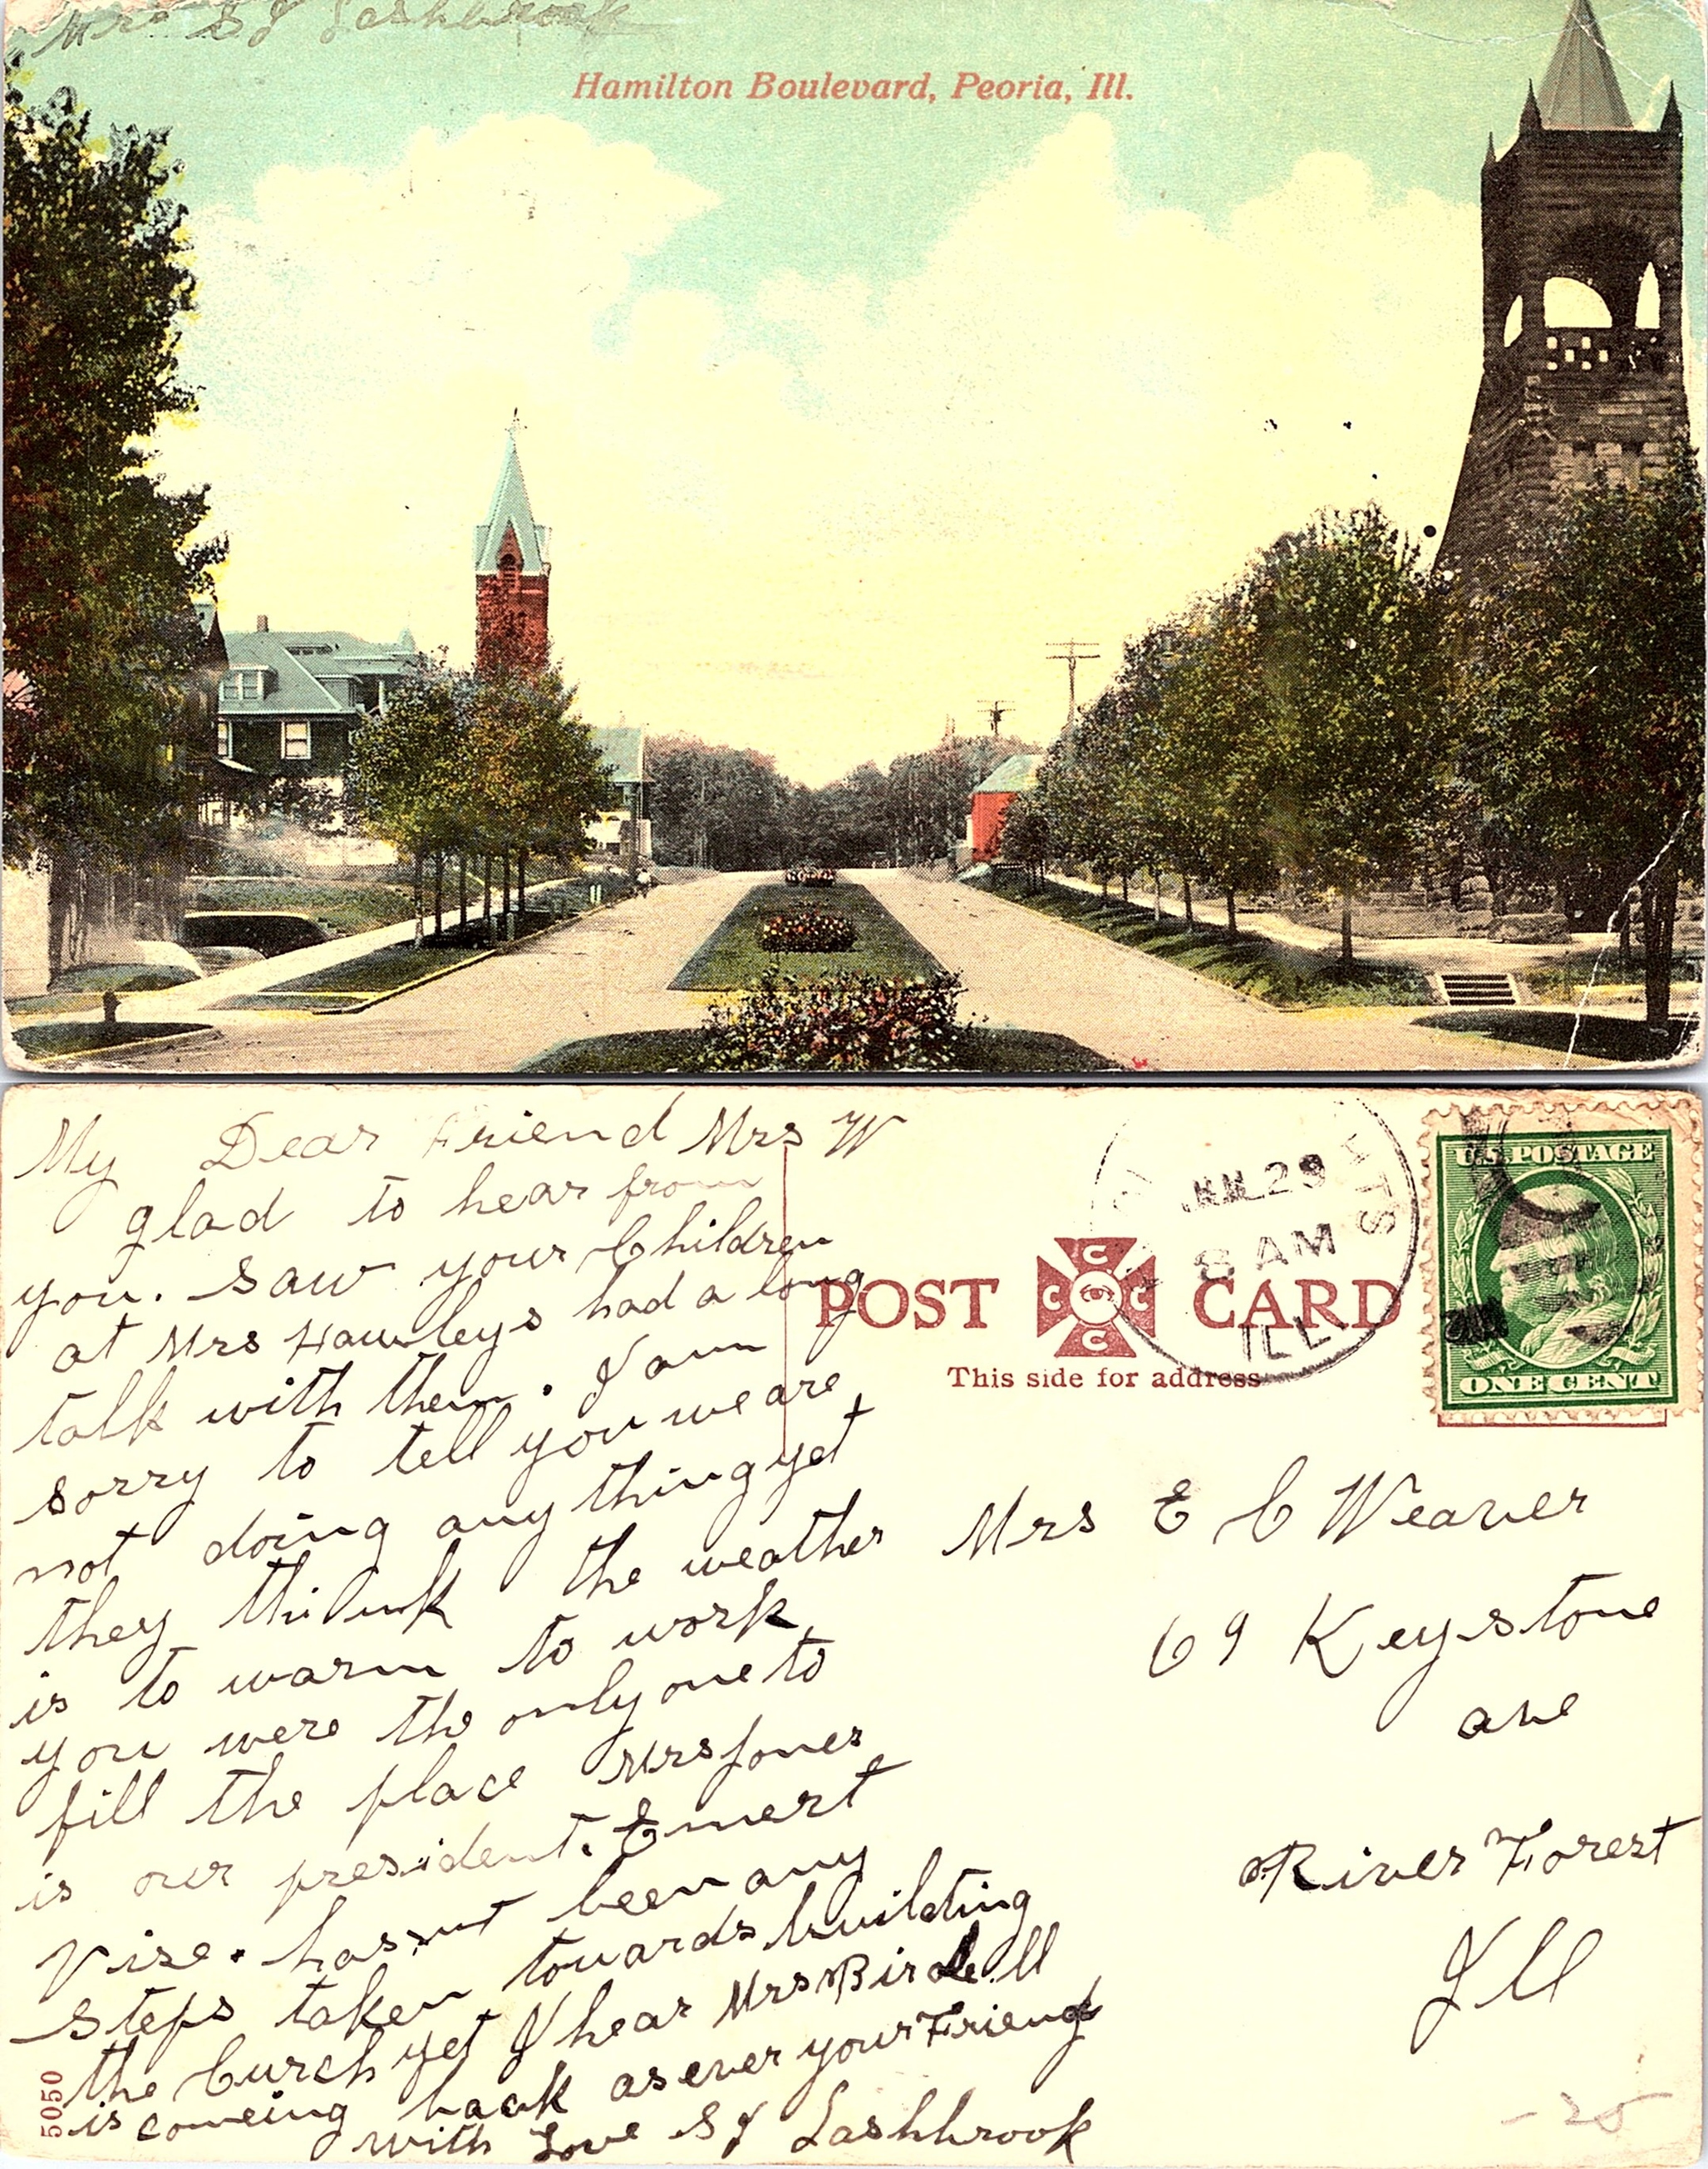 Mrs S J Lashbrook
Hamilton Boulevard, Peoria, Ill.
My Dear Friend Mrs W
glad to hear from
you. Saw your Children
at Mrs Hawleys had a long
talk with them. I am
sorry to tell you we are
not doing any thing yet
they think the weather
is to warm to work
you were the only one to
fill the place Mrs Jones
is our president. Emert
Vise. hassnt been any
steps taken towards building
the Curch yet I hear Mrs Birdell
is comeing back as ever your Friend
with Love S J Lashbrook
5050
JUL 29
8 AM
ILL.
U.S. POSTAGE
ONE CENT
POST CARD
C C C C
This side for address
Mrs E C Weaver
69 Keystone
ave
River Forest
Ill
- 25